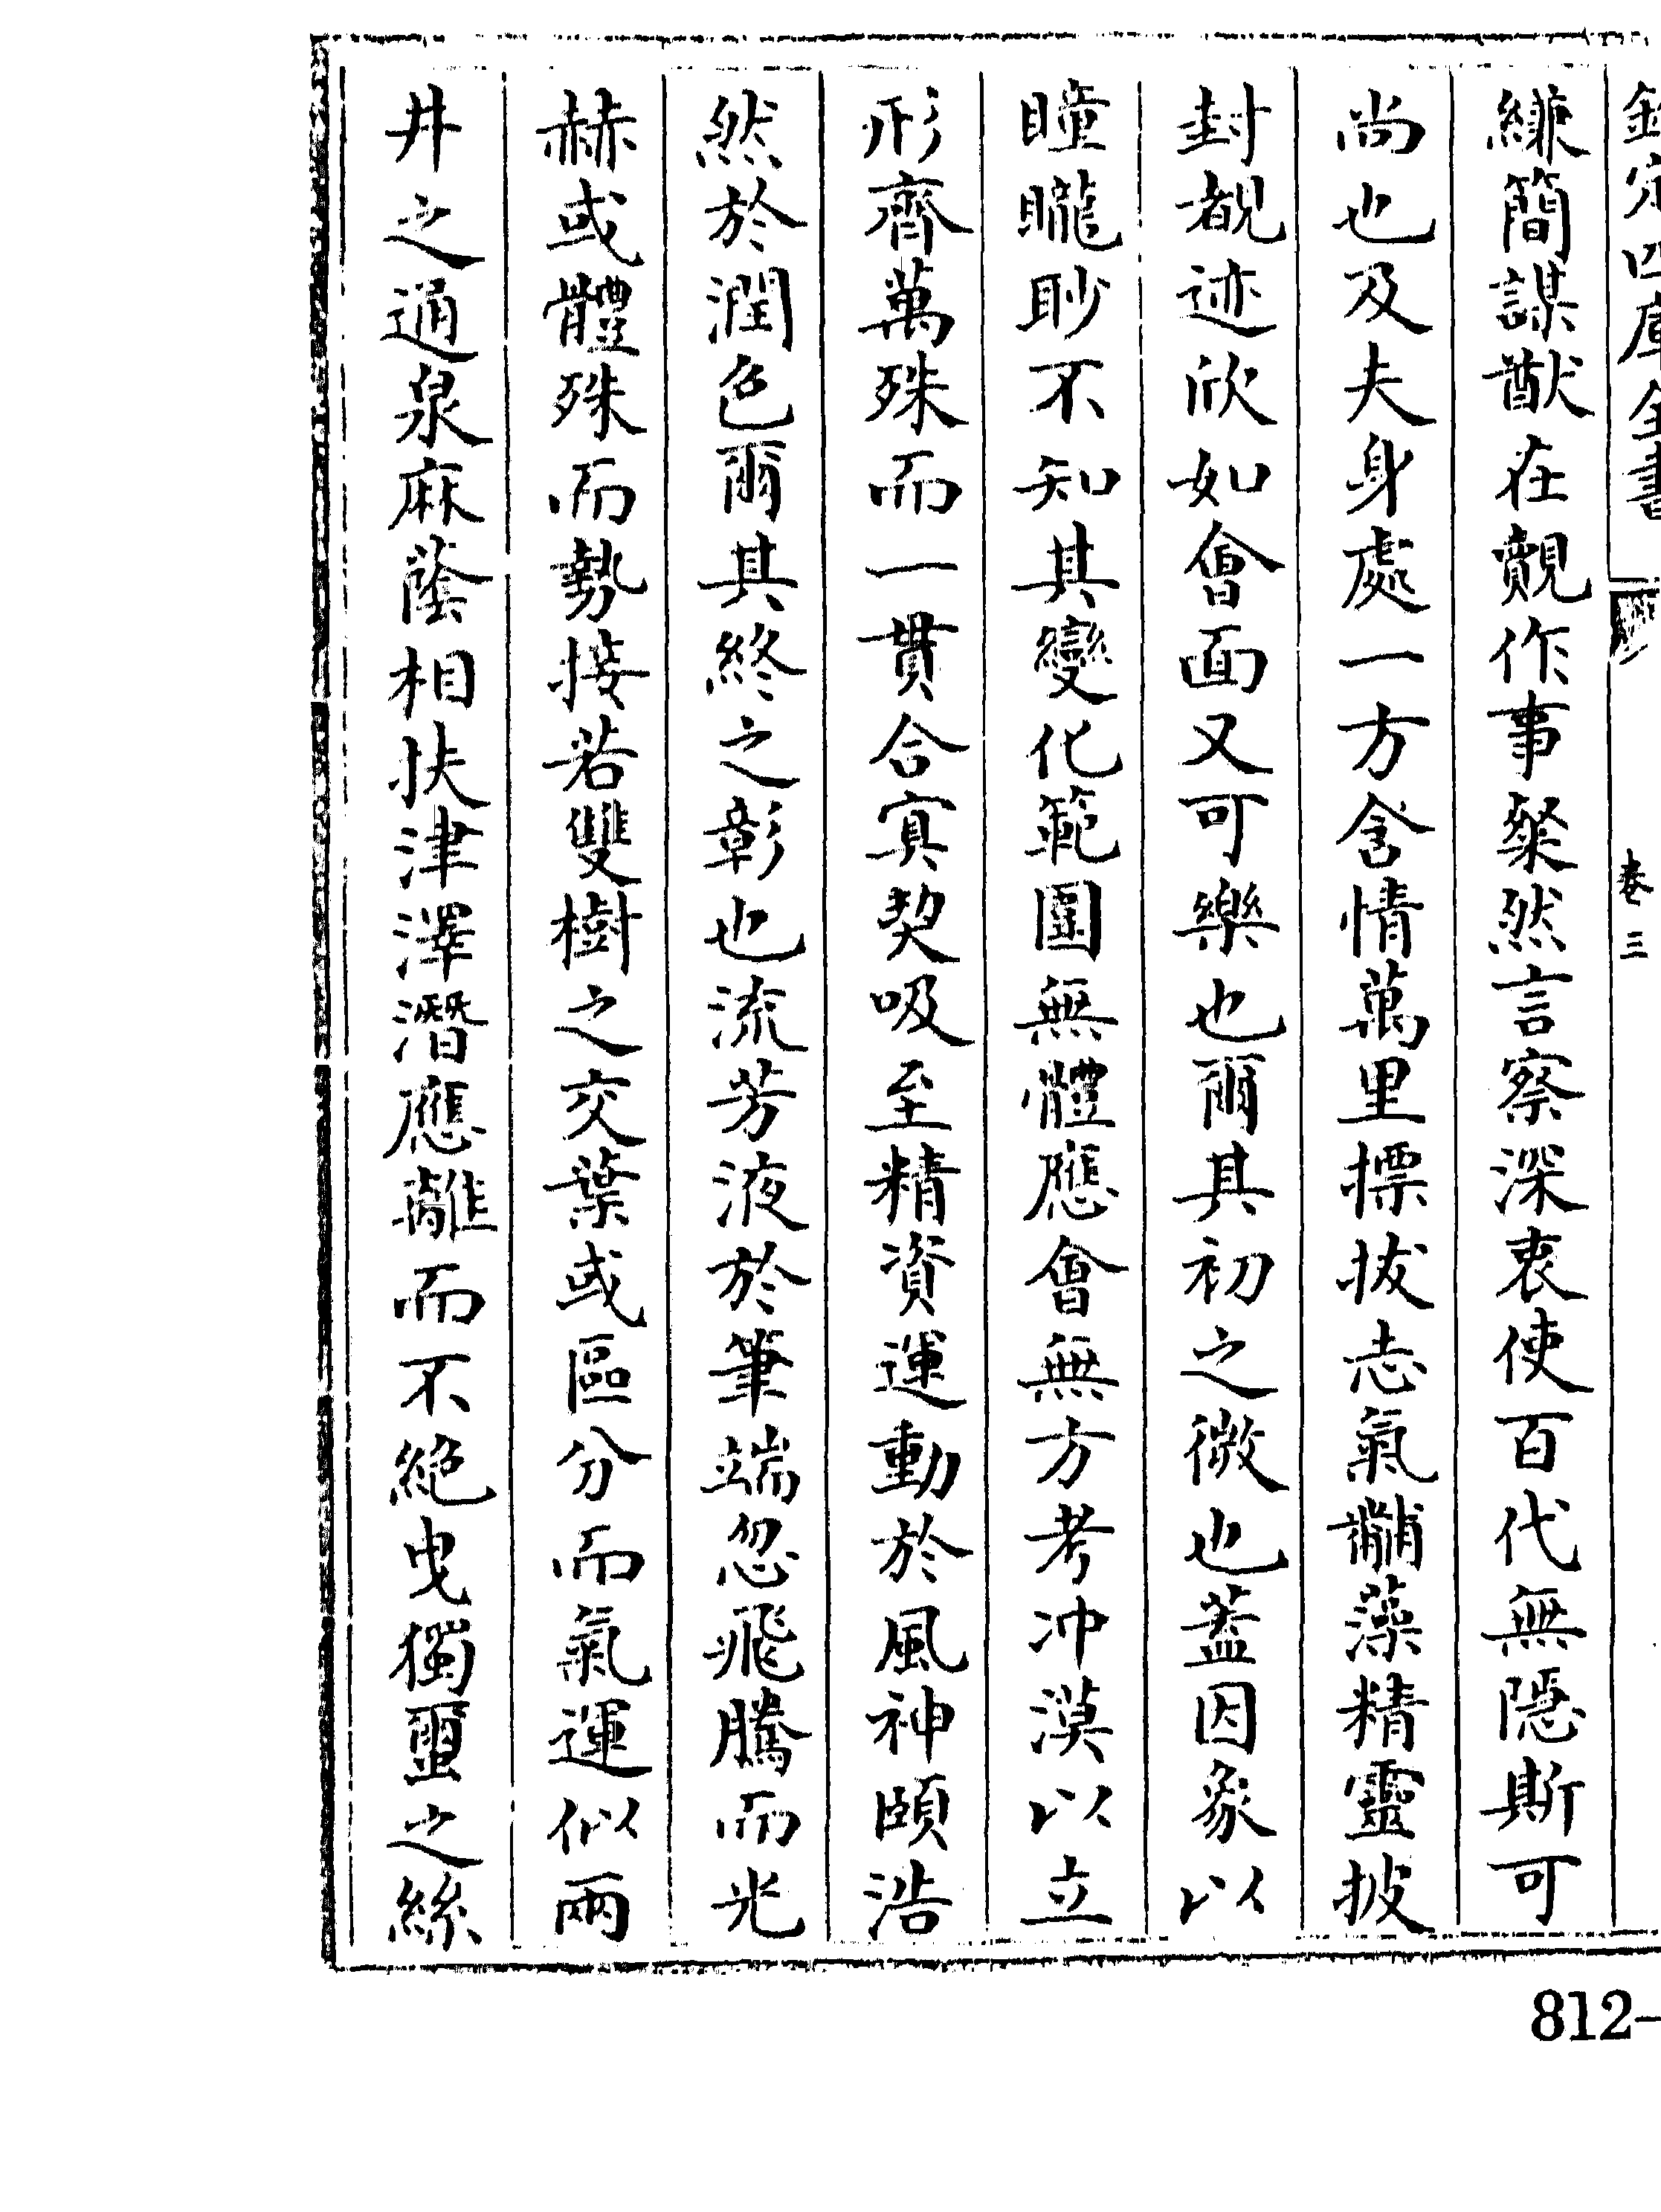 欽定四庫全書
卷三
縑簡謀猷在覿作事粲然言察深衷使百代無隱斯可
尚也及夫身處一方含情萬里摽拔志氣黼藻精靈披
封覩迹欣如會面又可樂也爾其初之微也蓋因象以
瞳矓眇不知其變化範圍無體應會無方考沖漠以立
形齊萬殊而一貫合冥契吸至精資運動於風神頤浩
然於潤色爾其終之彰也流芳液於筆端忽飛騰而光
赫或體殊而勢接若雙樹之交葉或區分而氣運似兩
井之通泉麻蔭相扶津澤潛應離而不絶曳獨璽之絲
812-